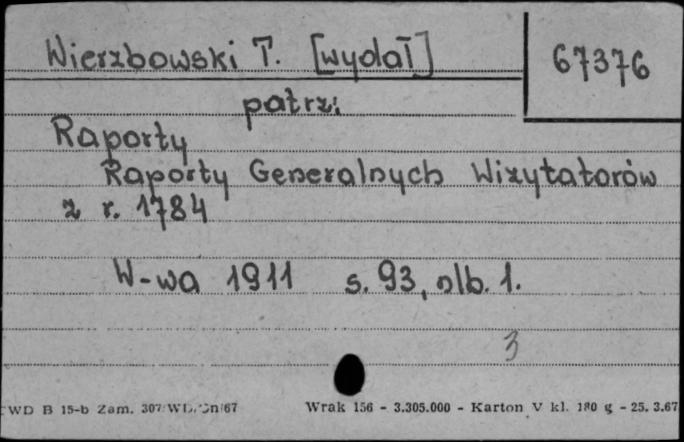 Wierzbowski T. [wydał]
67376
patrz:
Raporty
Raporty Generalnych Wizytatorów
z r. 1784
W-wa 1911 s. 93, nlb. 1.
3
WD B 15-b Zam. 307/WD/Gn/67
Wrak 156 - 3.305.000 - Karton V kl. 180 g - 25. 3.67